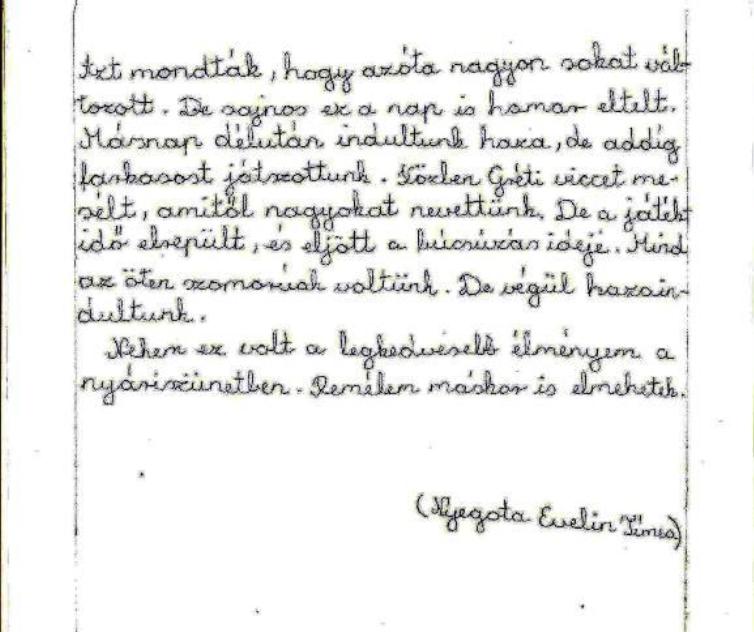 Azt mondták, hogy azóta nagyon sokat vál-
tozott. De sajnos ez a nap is hamar eltelt.
Másnap délután indultunk haza, de addig
farkasost játszottunk. Közben Gréti viccet me-
sélt, amitől nagyokat nevettünk. De a játék
idő elrepült, és eljött a búcsúzás ideje. Mind
az öten szomorúak voltunk. De végül hazain-
dultunk.
Nekem ez volt a legkedvesebb élményem a
nyáriszünetben. Remélem máskor is elmehetek.
(Nyegota Evelin Tímea)